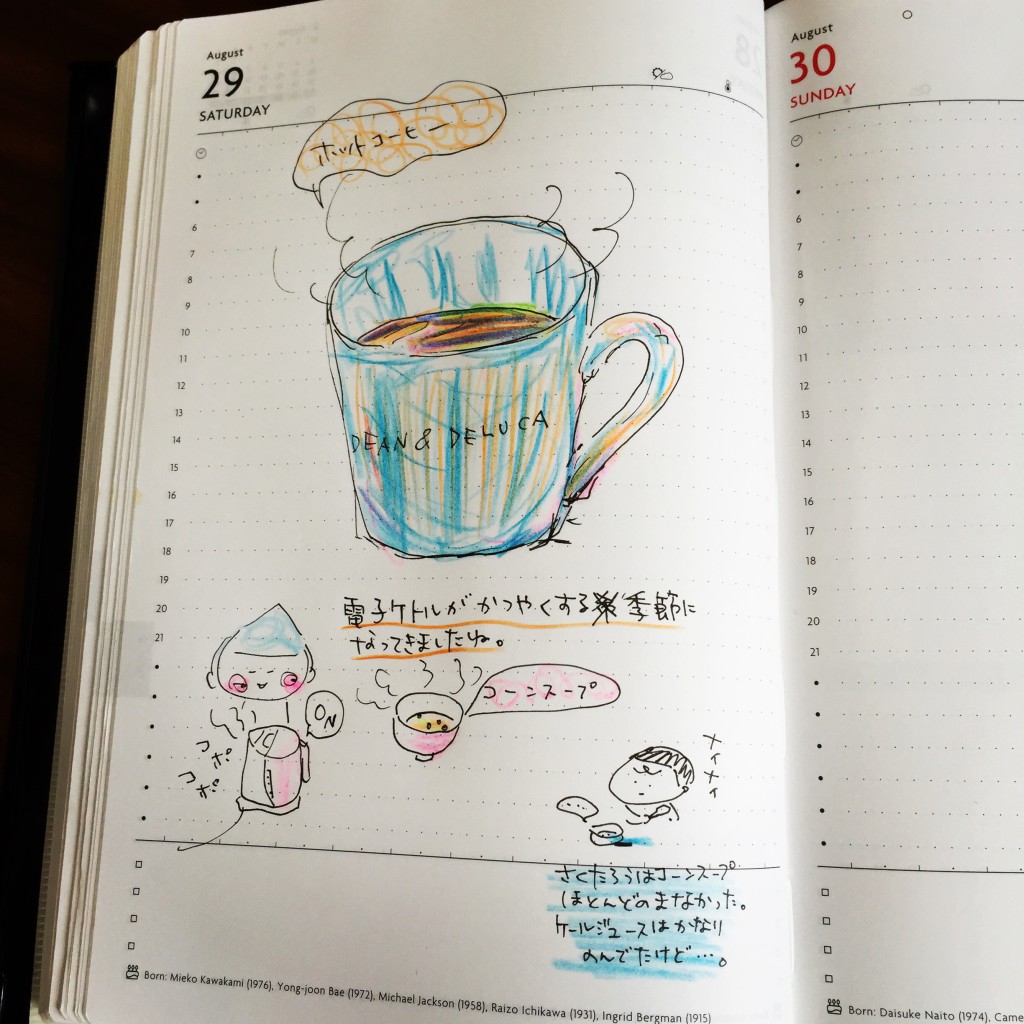 August
29
SATURDAY
ホットコーヒー
6
7
8
9
10
11
12
13
14
15
16
17
18
19
20
21
DEAN & DELUCA
電子ケトルがかつやくする季節に
なってきましたね。
コーンスープ
ON
コポ
コポ
ナイナイ
さくたろうはコーンスープ
ほとんどのまなかった。
ケールジュースはかなり
のんでたけど…。
Born: Mieko Kawakami (1976), Yong-joon Bae (1972), Michael Jackson (1958), Raizo Ichikawa (1931), Ingrid Bergman (1915)
August
30
SUNDAY
6
7
8
9
10
11
12
13
14
15
16
17
18
19
20
21
Born: Daisuke Naito (1974), Came